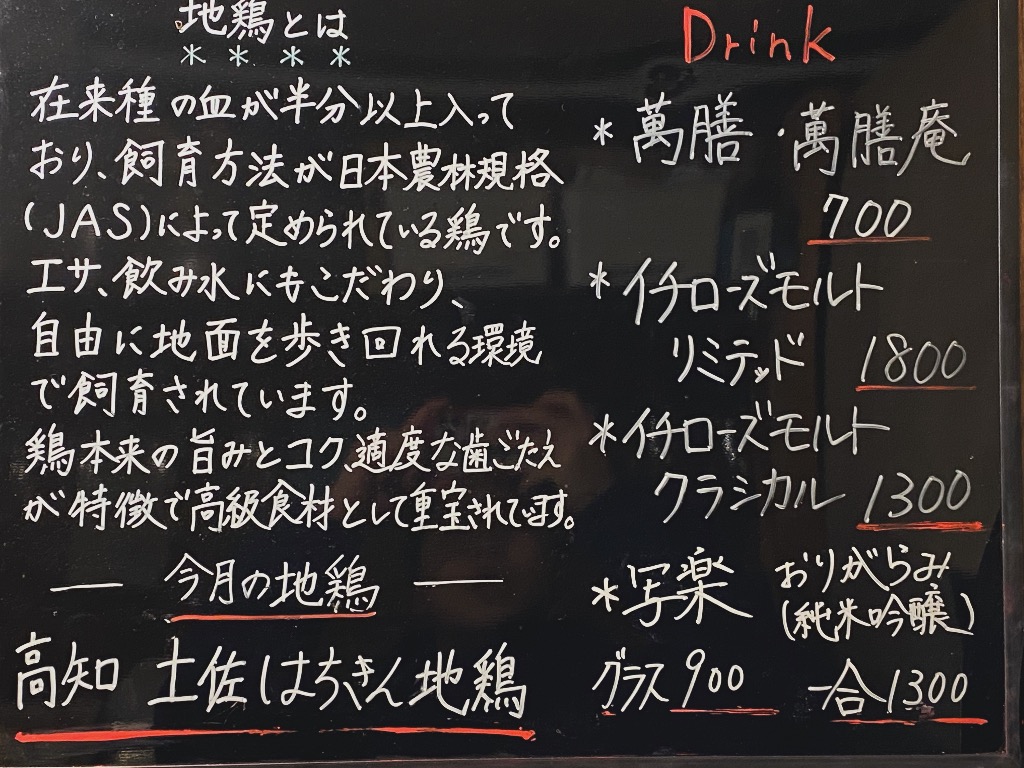 地鶏とは
＊＊＊＊
在来種の血が半分以上入って
おり、飼育方法が日本農林規格
(JAS)によって定められている鶏です。
エサ、飲み水にもこだわり、
自由に地面を歩き回れる環境
で飼育されています。
鶏本来の旨みとコク、適度な歯ごたえ
が特徴で高級食材として重宝されています。
― 今月の地鶏 ―
高知 土佐はちきん地鶏
Drink
＊萬膳・萬膳庵
700
＊イチローズモルト
リミテッド 1800
＊イチローズモルト
クラシカル 1300
＊写楽 おりがらみ
(純米吟醸)
グラス900 一合1300